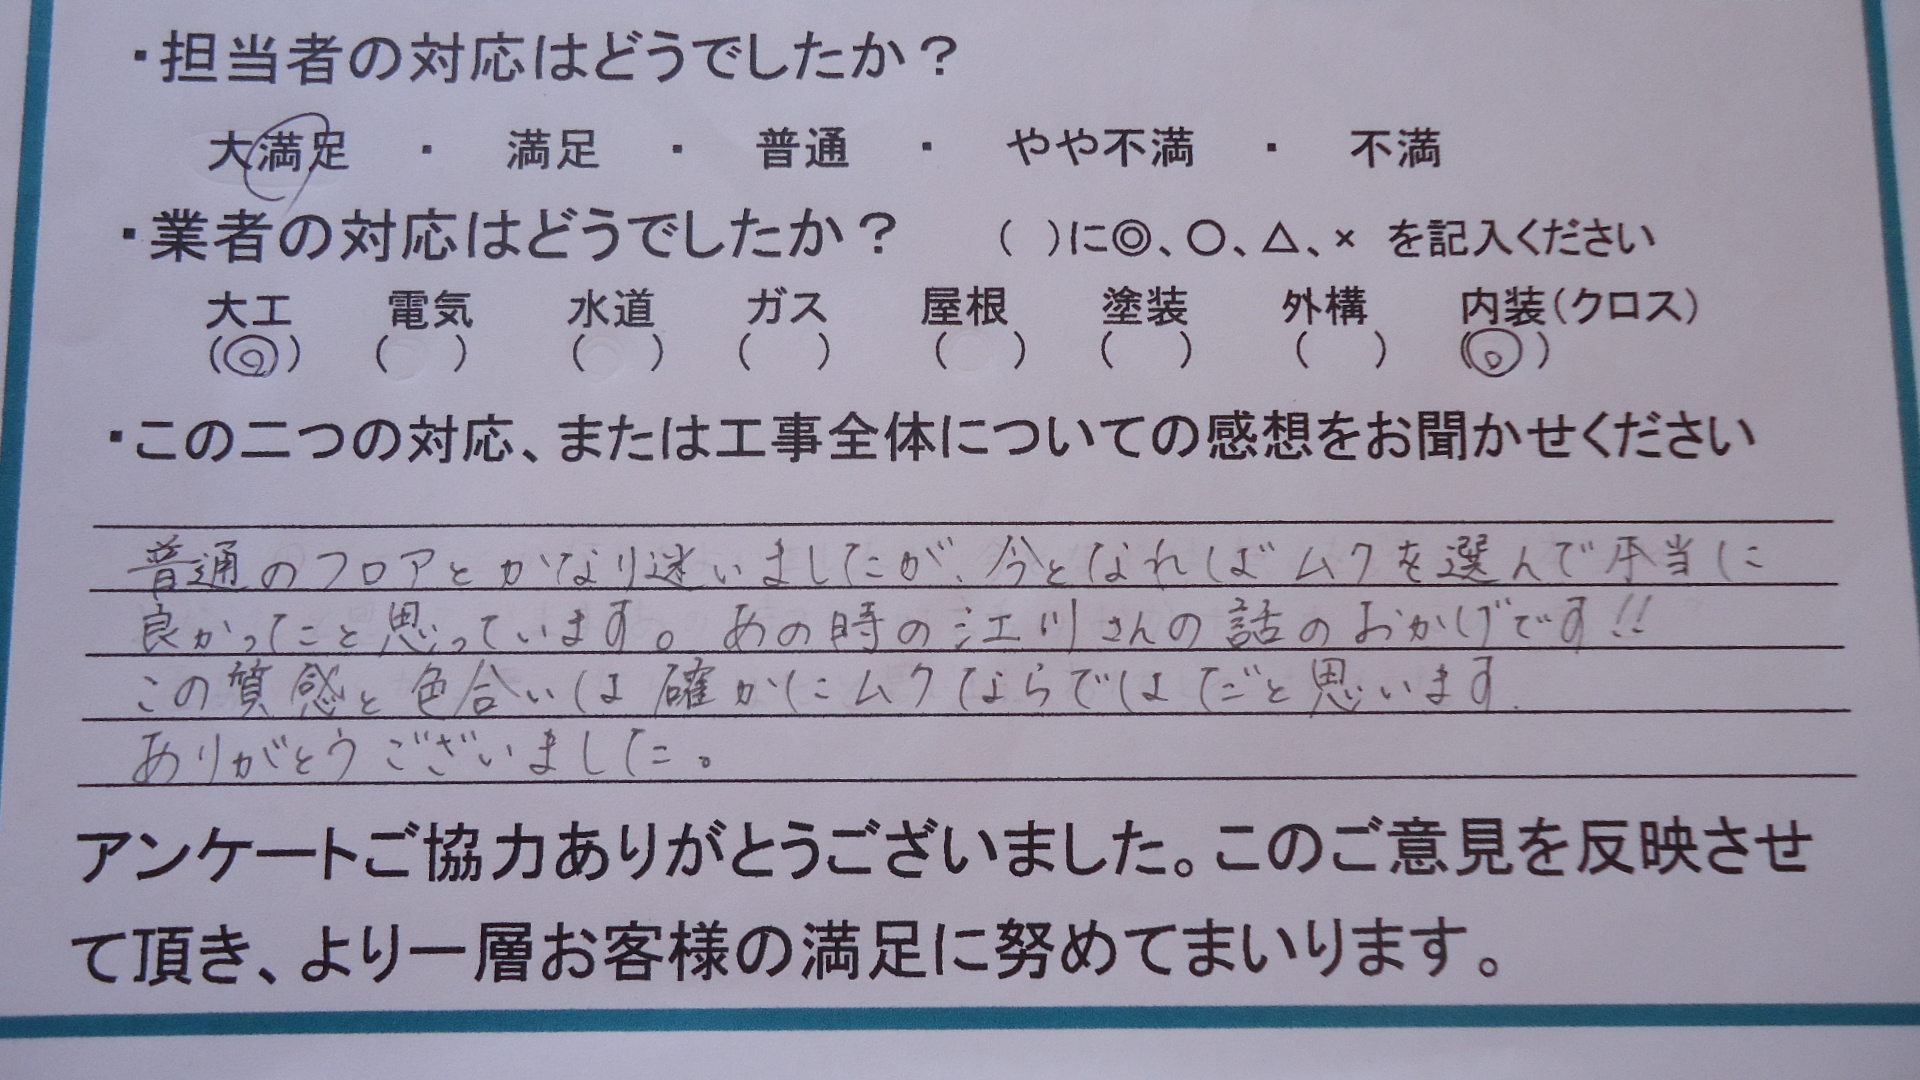 ・担当者の対応はどうでしたか？
大満足 ・ 満足 ・ 普通 ・ やや不満 ・ 不満
・業者の対応はどうでしたか？ （ ）に◎、○、△、× を記入ください
大工 電気 水道 ガス 屋根 塗装 外構 内装（クロス）
（◎） （ ） （ ） （ ） （ ） （ ） （ ） （◎）
・この二つの対応、または工事全体についての感想をお聞かせください
普通のフロアとかなり迷いましたが、今となればムクを選んで本当に
良かったこと思っています。あの時の江川さんの話のおかげです!!
この質感と色合いは確かにムクならではだと思います.
ありがとうございました。
アンケートご協力ありがとうございました。このご意見を反映させ
て頂き、より一層お客様の満足に努めてまいります。